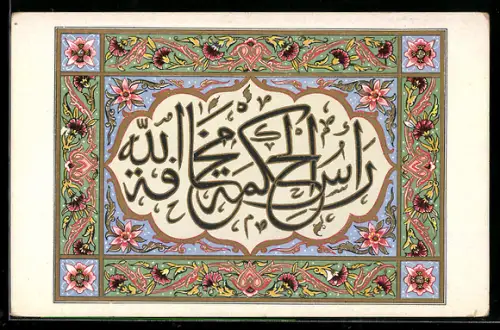 رَأسُ الحِكمَةِ مَخَافَةُ الله